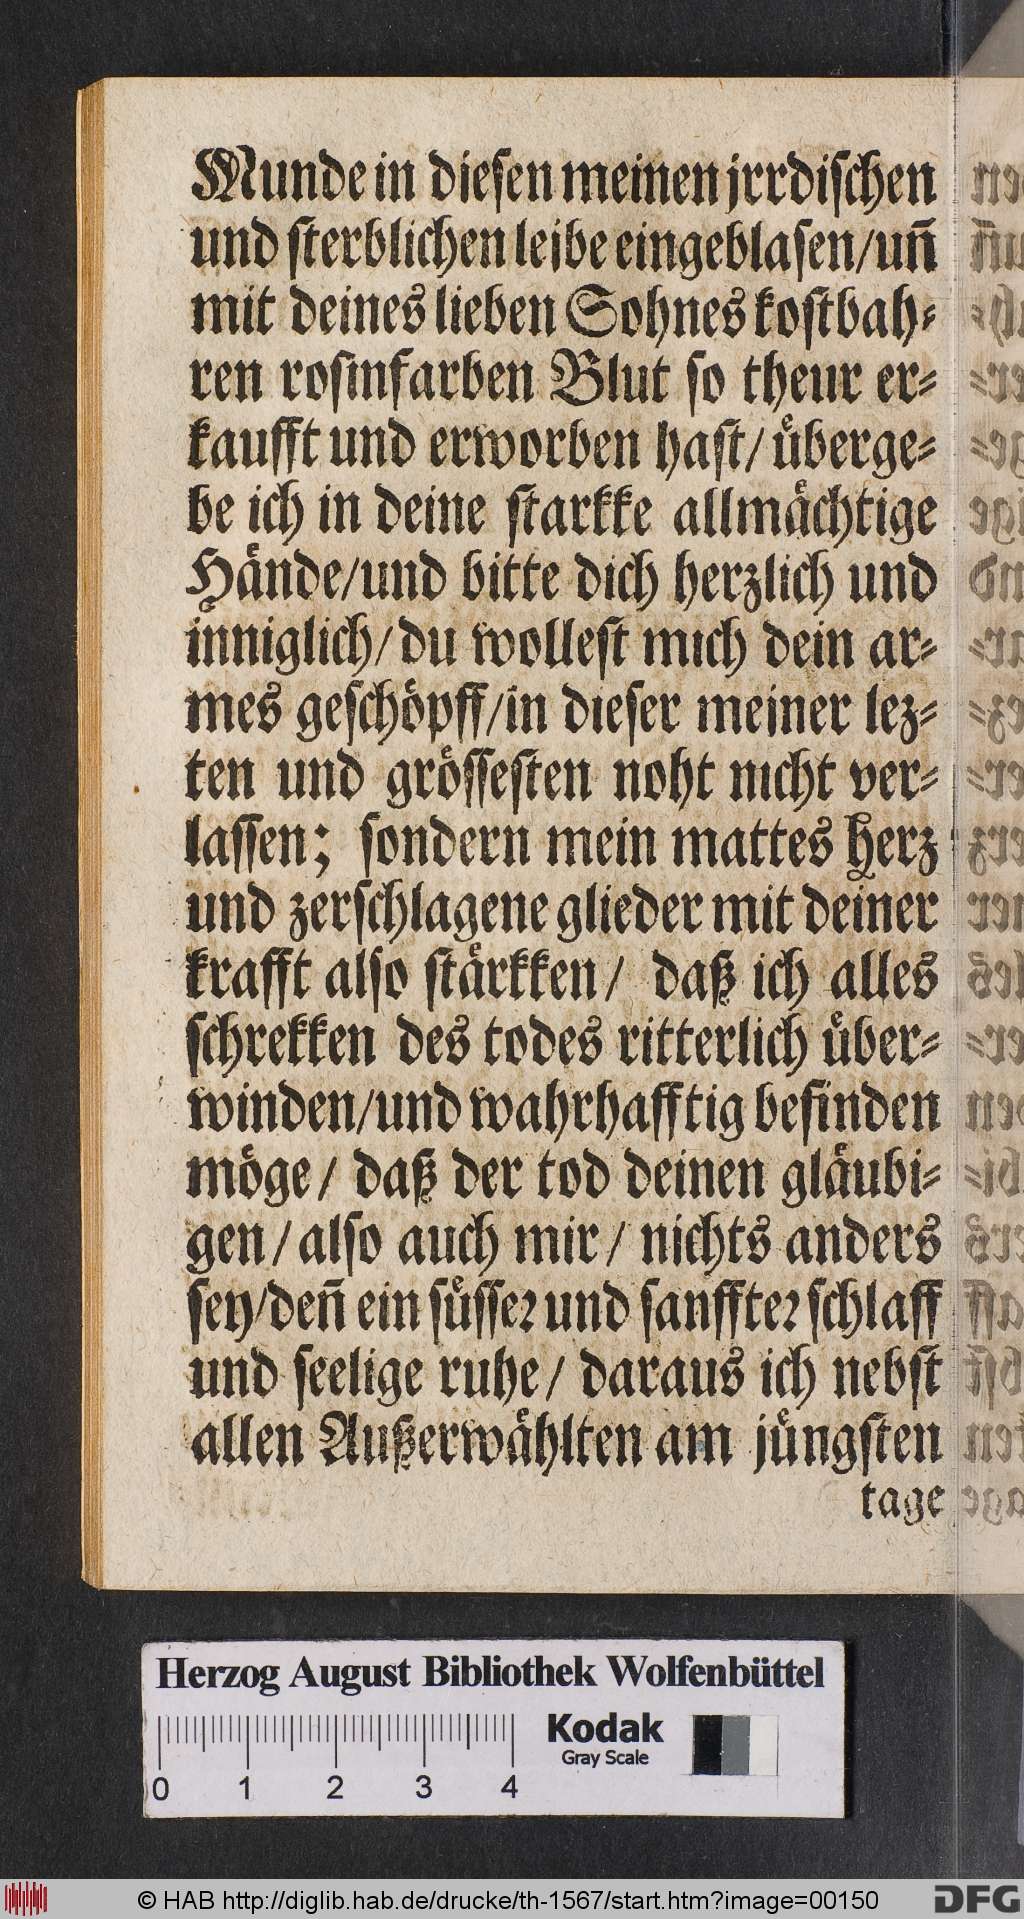 Munde in diesen meinen jrrdischen
und sterblichen leibe eingeblasen/un̄
mit deines lieben Sohnes kostbah⸗
ren rosinfarben Blut so theur er⸗
kaufft und erworben hast/ uͤberge⸗
be ich in deine starkke allmaͤchtige
Haͤnde/und bitte dich herzlich und
inniglich/ du wollest mich dein ar⸗
mes geschoͤpff/in dieser meiner lez⸗
ten und groͤssesten noht nicht ver⸗
lassen; sondern mein mattes Herz
und zerschlagene glieder mit deiner
krafft also staͤrkken/ daß ich alles
schrekken des todes ritterlich uͤber⸗
winden/und wahrhafftig befinden
moͤge/ daß der tod deinen glaͤubi⸗
gen/ also auch mir/ nichts anders
sey/den̄ ein suͤsser und sanffter schlaff
und seelige ruhe/ daraus ich nebst
allen Außerwaͤhlten am juͤngsten
tage
Herzog August Bibliothek Wolfenbüttel
Kodak
Gray Scale
0 1 2 3 4
© HAB http://diglib.hab.de/drucke/th-1567/start.htm?image=00150
DFG